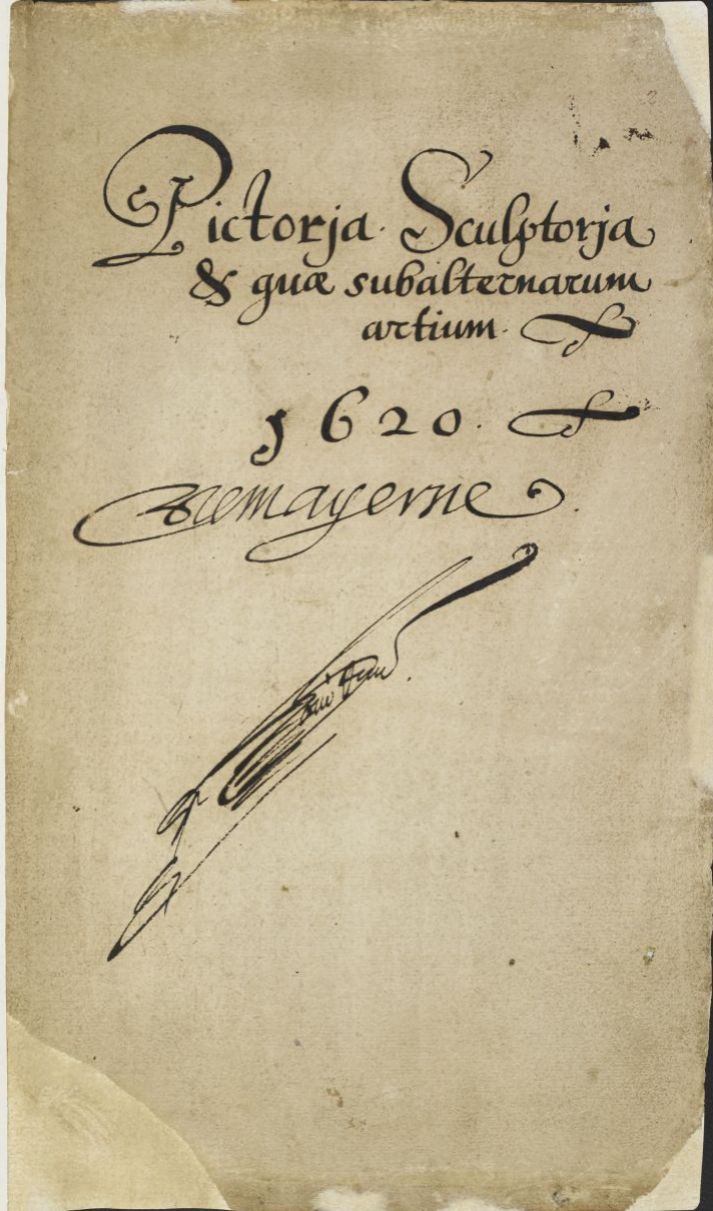 Pictorja. Sculptorja
& quæ subalternarum
artium.
1620.